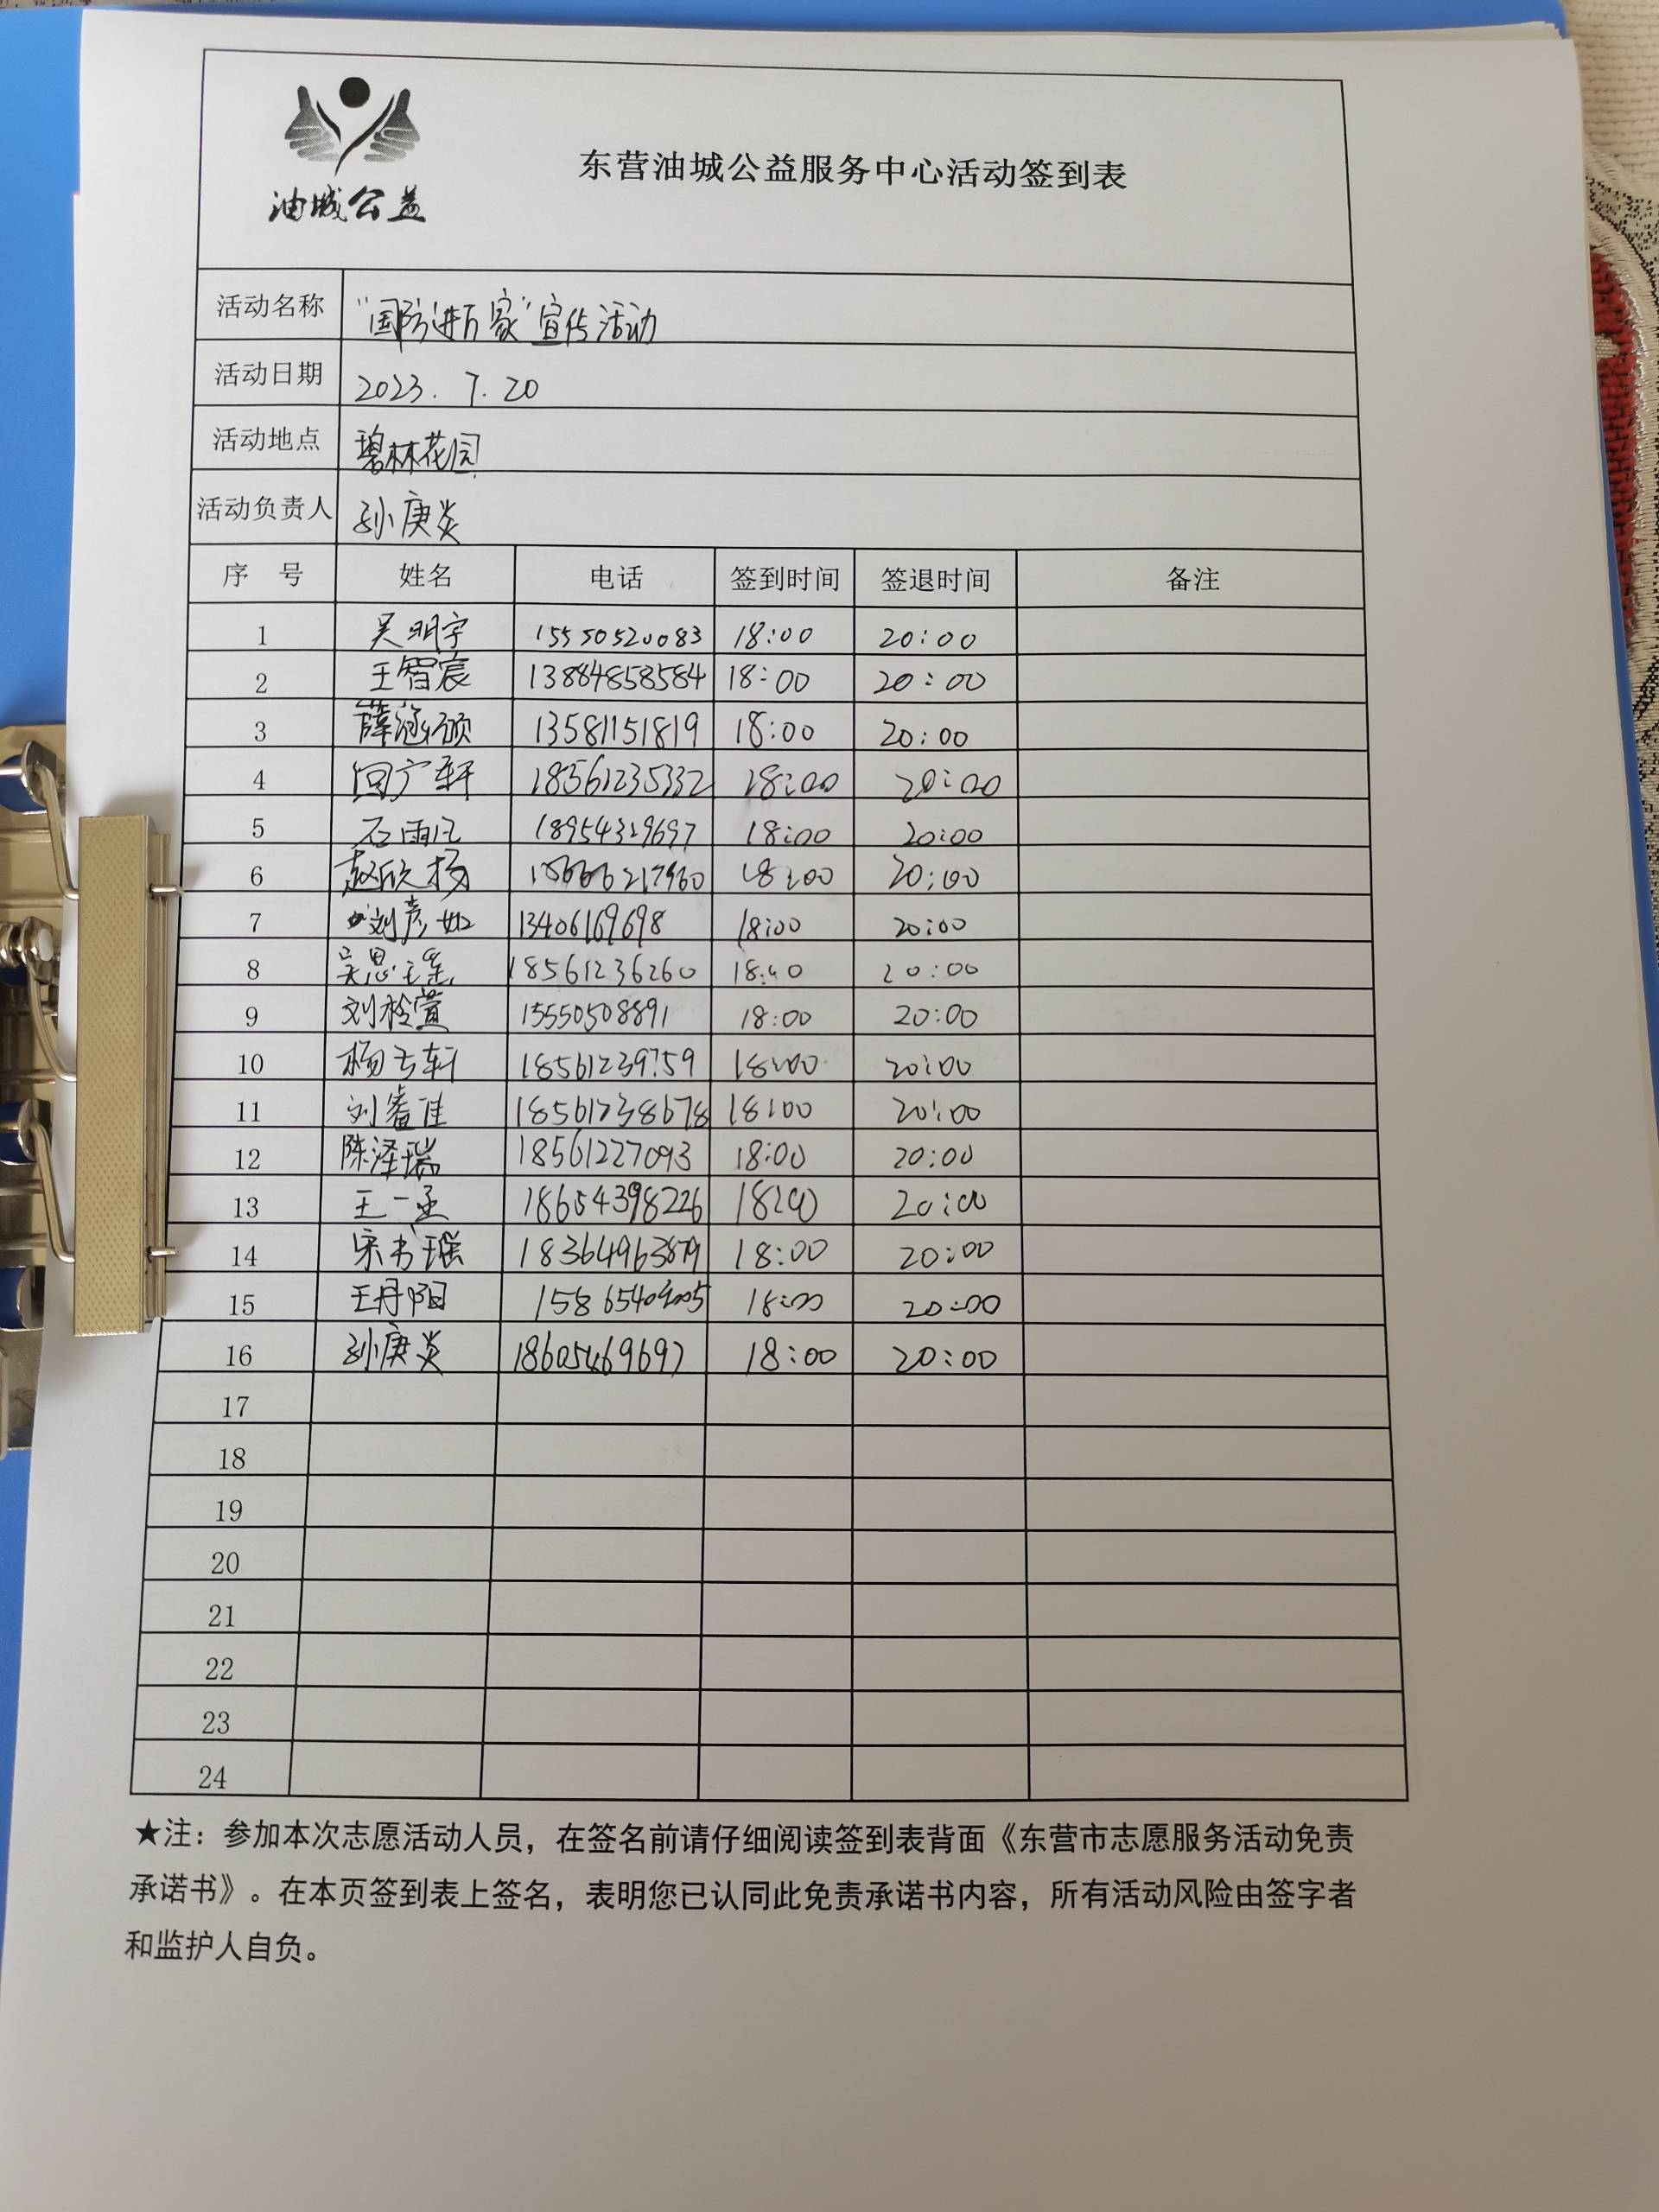 油城公益
东营油城公益服务中心活动签到表
活动名称 "国防进万家"宣传活动
活动日期 2023.7.20
活动地点 碧林花园
活动负责人 孙庚炎
序 号 姓名 电话 签到时间 签退时间 备注
1 吴明宇 15550520083 18:00 20:00
2 王智宸 13884858584 18:00 20:00
3 薛涵硕 13581151819 18:00 20:00
4 闫宁轩 18561235332 18:00 20:00
5 石雨凡 18954329697 18:00 20:00
6 赵欣杨 18:00 20:00
7 刘彦如 13406169698 18:00 20:00
8 吴思瑶 18561236260 18:00 20:00
9 刘桧萱 15550508891 18:00 20:00
10 杨云轩 18561239759 18:00 20:00
11 刘睿佳 18561238678 18:00 20:00
12 陈泽瑞 18561227093 18:00 20:00
13 王一丞 18654398226 18:00 20:00
14 宋书瑶 18364963879 18:00 20:00
15 王丹阳 18:00 20:00
16 孙庚炎 18605469697 18:00 20:00
17
18
19
20
21
22
23
24
★注：参加本次志愿活动人员，在签名前请仔细阅读签到表背面《东营市志愿服务活动免责
承诺书》。在本页签到表上签名，表明您已认同此免责承诺书内容，所有活动风险由签字者
和监护人自负。